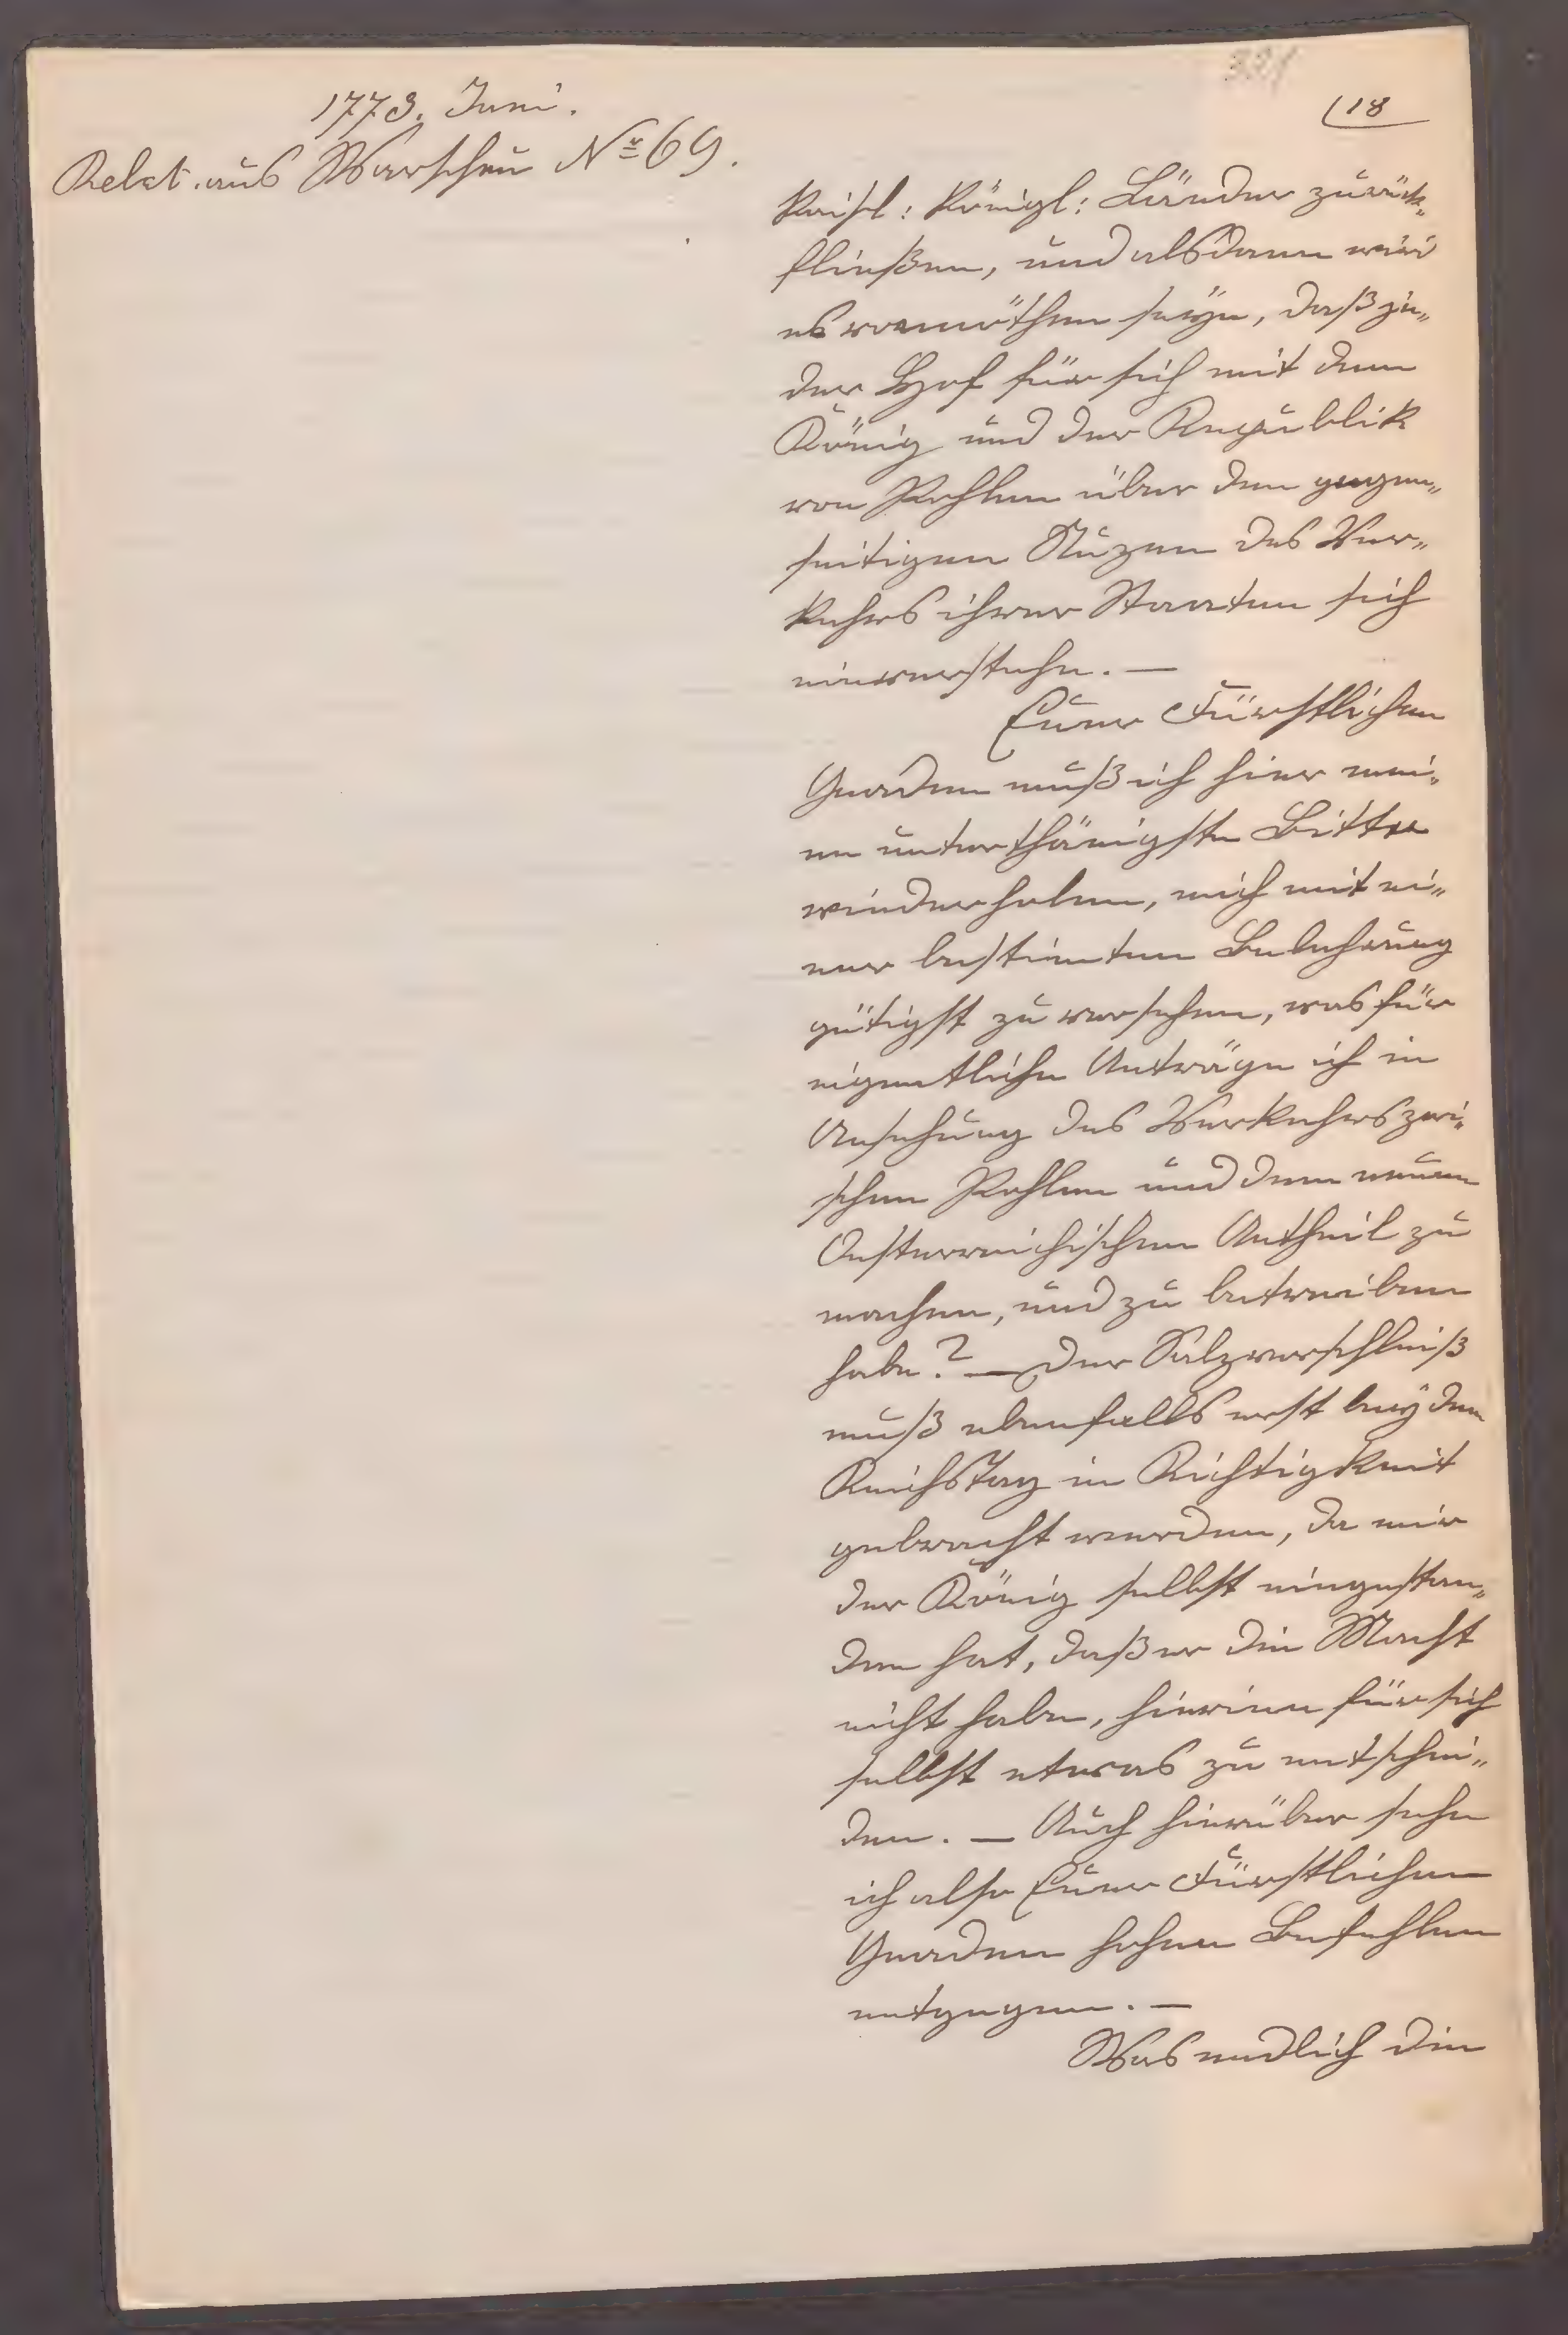 1773. Juni.
Relat. aus Warschau Nr 69.
(18
Kaisl: Königl: Länder zurück„
fließen, und alsdann wird
es vonnöthen seÿn, daß je„
der Hof für sich mit dem
König und der Republik
von Pohlen über den gegen„
seitigen Nuzen des Ver„
kehrs ihrer Staaten sich
einverstehe. —
Euer Fürstlichen
Gnaden muß ich hier mei„
ne unterthänigste Bitte
wiederholen, mich mit ei„
ner bestimten Belehrung
gütigst zu versehen, was für
eigentliche Anträge ich in
Ansehung des Verkehrs zwi„
schen Pohlen und dem neuen
Oesterreichischen Antheil zu
machen, und zu betreiben
habe? — Der Salzverschleiß
muß ebenfalls erst beÿ dem
Reichstag in Richtigkeit
gebracht werden, da mir
der König selbst eingestan„
den hat, daß er die Macht
nicht habe, hierinn für sich
selbst etwas zu entschei„
den. — Auch hierüber sehe
ich also Euer Fürstlichen
Gnaden hohen Befehlen
entgegen. —
Was endlich die